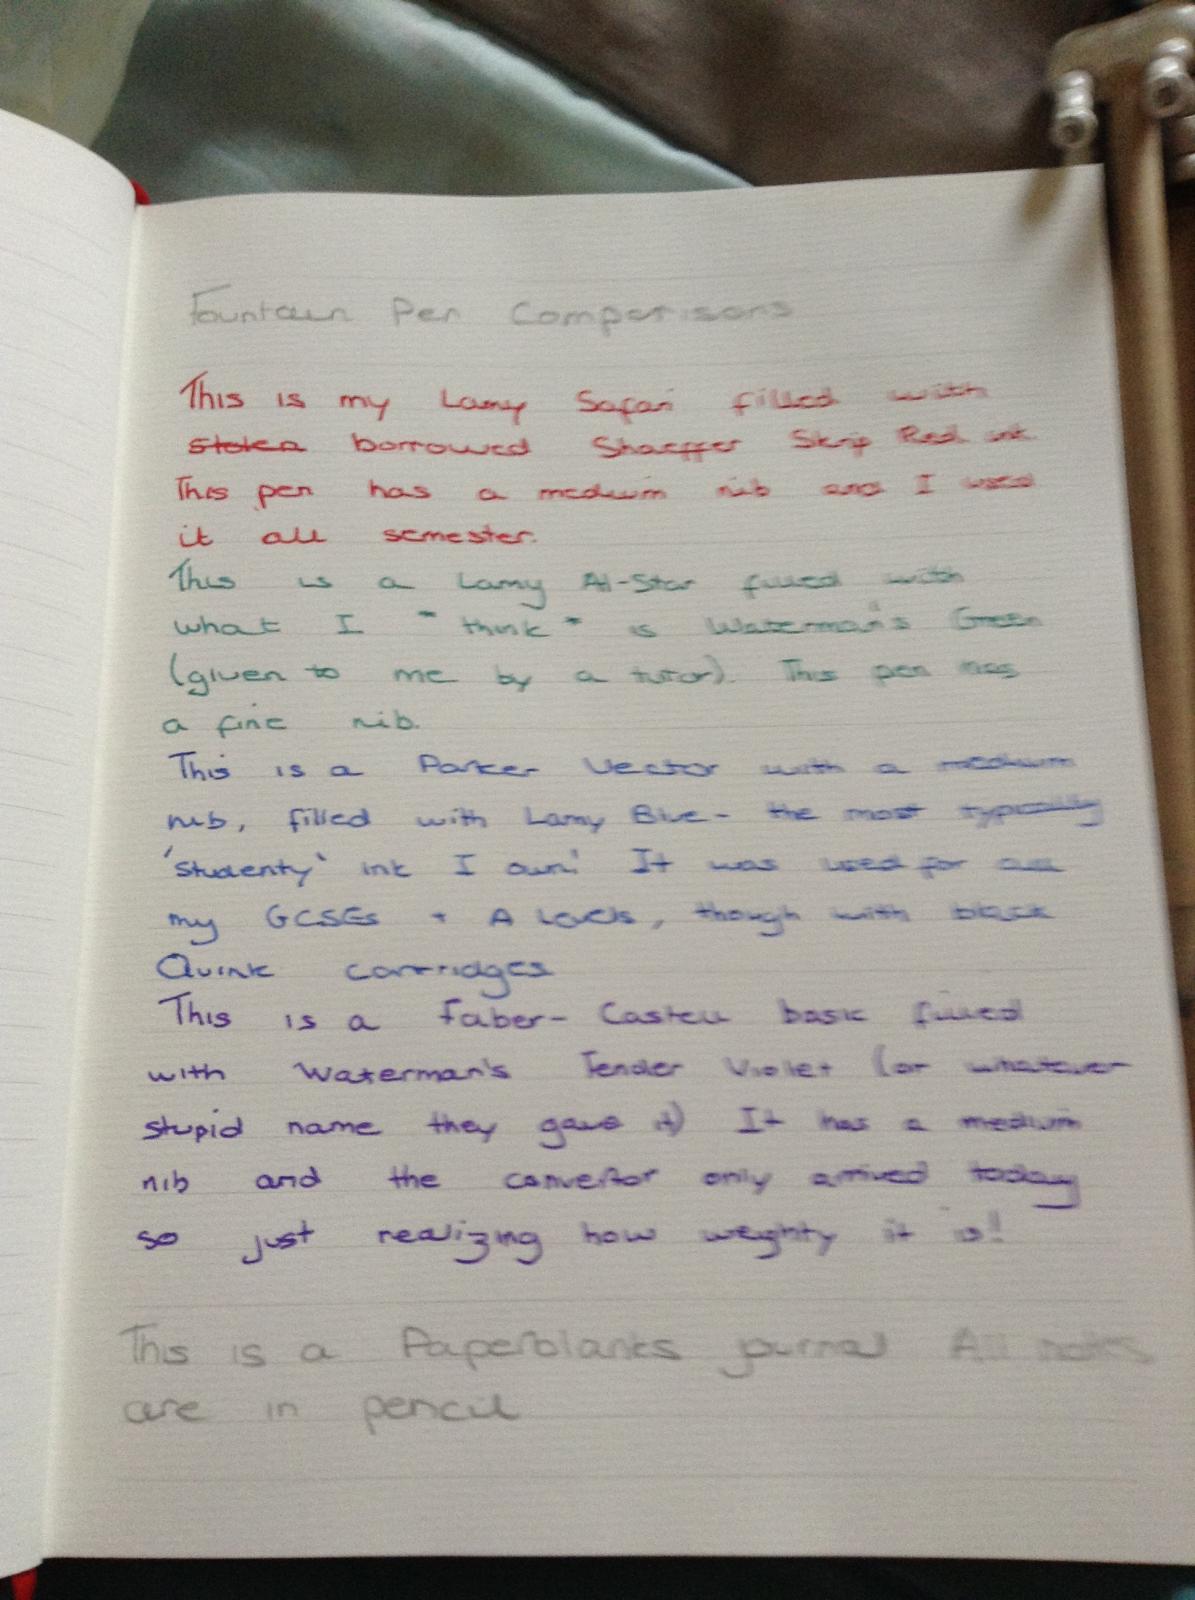 Fountain Pen Comparisons
This is my Lamy Safari filled with
stolen borrowed Shaeffer Skrip Red ink.
This pen has a medium nib and I used
it all semester.
This is a Lamy Al-Star filled with
what I "think" is Waterman's Green
(given to me by a tutor). This pen has
a fine nib.
This is a Parker Vector with a medium
nib, filled with Lamy Blue - the most typically
'studenty' ink I own! It was used for all
my GCSEs + A Levels, though with black
Quink cartridges
This is a Faber-Castell basic filled
with Waterman's Tender Violet (or whatever
stupid name they gave it) It has a medium
nib and the convertor only arrived today
so just realizing how weighty it is!
This is a Paperblanks journal All notes
are in pencil